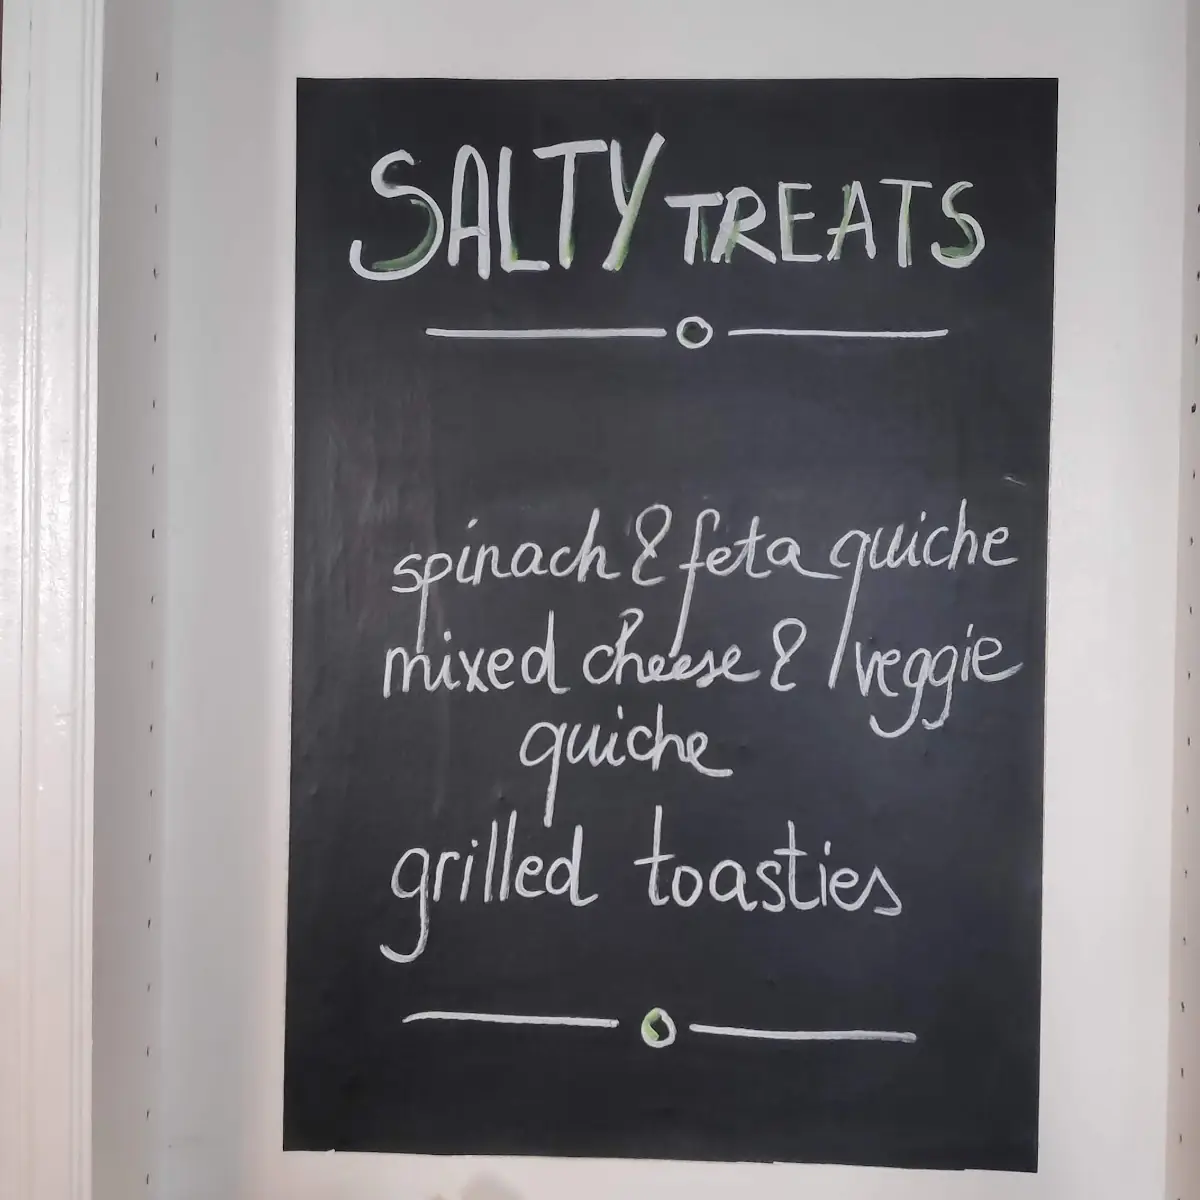 SALTY TREATS
spinach & feta quiche
mixed cheese & veggie
quiche
grilled toasties